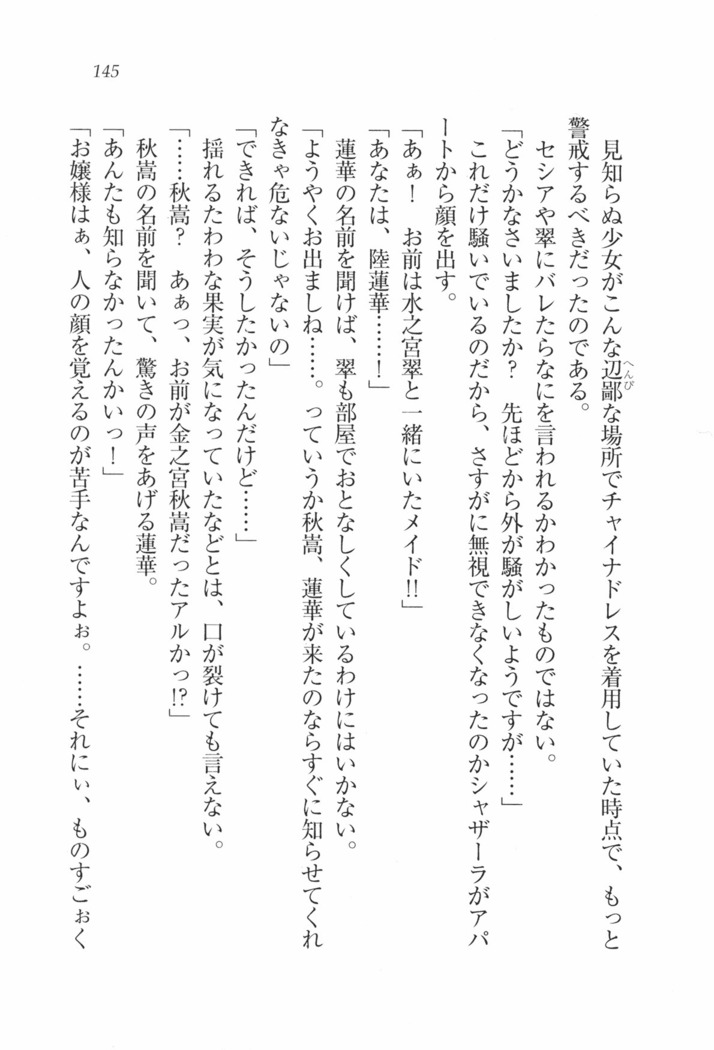 145
見知らぬ少女がこんな辺鄙な場所でチャイナドレスを着用していた時点で、もっと
へんぴ
警戒するべきだったのである。
セシアや翠にバレたらなにを言われるかわかったものではない。
「どうかなさいましたか？　先ほどから外が騒がしいようですが……」
これだけ騒いでいるのだから、さすがに無視できなくなったのかシャザーラがアパ
ートから顔を出す。
「あぁ！　お前は水之宮翠と一緒にいたメイド!!」
「あなたは、陸蓮華……！」
蓮華の名前を聞けば、翠も部屋でおとなしくしているわけにはいかない。
「ようやくお出ましね……。っていうか秋嵩、蓮華が来たのならすぐに知らせてくれ
なきゃ危ないじゃないの」
「できれば、そうしたかったんだけど……」
揺れるたわわな果実が気になっていたなどとは、口が裂けても言えない。
「……秋嵩？　あぁっ、お前が金之宮秋嵩だったアルかっ!?」
秋嵩の名前を聞いて、驚きの声をあげる蓮華。
「あんたも知らなかったんかいっ！」
「お嬢様はぁ、人の顔を覚えるのが苦手なんですよぉ。……それにぃ、ものすごぉく